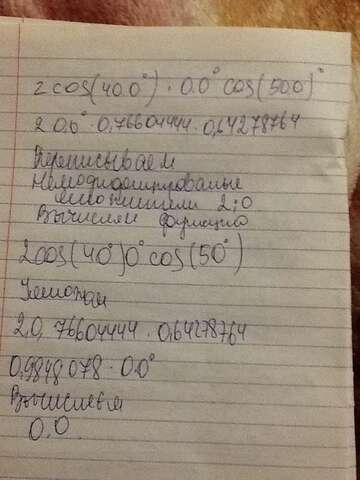 2 cos(40.0°) · 0.0° cos(50.0)°
2 0.0° · 0,76604444 · 0,64278764
Переписываем
Немодифицированые
множители 2;0
Вычисляем функцию
2cos(40°)0°cos(50°)
Умножаем
2.0, 76604444 · 0,64278764
0,9848078 · 0.0°
Вычисляем
0.0.